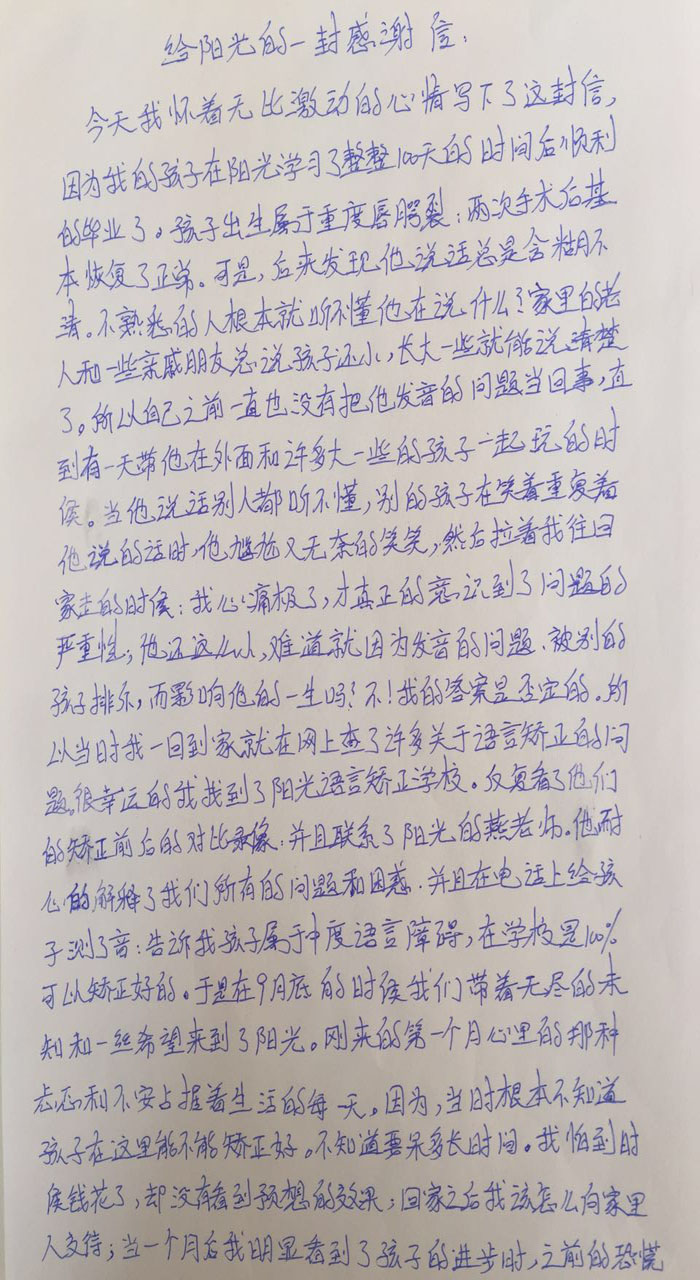 给阳光的一封感谢信：
今天我怀着无比激动的心情写下了这封信，
因为我的孩子在阳光学习了整整100天的时间后顺利
的毕业了。孩子出生属于重度唇腭裂：两次手术后基
本恢复了正常。可是，后来发现他说话总是含糊不
清。不熟悉的人根本就听不懂他在说什么？家里的老
人和一些亲戚朋友总说孩子还小，长大一些就能说清楚
了。所以自己之前一直也没有把他发音的问题当回事，直
到有一天带他在外面和许多大一些的孩子一起玩的时
候。当他说话别人都听不懂，别的孩子在笑着重复着
他说的话时，他尴尬又无奈的笑笑，然后拉着我往回
家走的时候：我心痛极了，才真正的意识到了问题的
严重性；他还这么小，难道就因为发音的问题、被别的
孩子排斥，而影响他的一生吗？不！我的答案是否定的。所
以当时我一回到家就在网上查了许多关于语言矫正的问
题。很幸运的我找到了阳光语言矫正学校。反复看了他们
的矫正前后的对比录像：并且联系了阳光的燕老师。他耐
心的解释了我们所有的问题和困惑．并且在电话上给孩
子测了音：告诉我孩子属于中度语言障碍，在学校是100%
可以矫正好的。于是在9月底的时候我们带着无尽的未
知和一丝希望来到了阳光。刚来的第一个月心里的那种
忐忑和不安占据着生活的每一天。因为，当时根本不知道
孩子在这里能不能矫正好。不知道要呆多长时间。我怕到时
候钱花了，却没有看到预想的效果；回家之后我该怎么向家里
人交待；当一个月后我明显看到了孩子的进步时，之前的恐慌